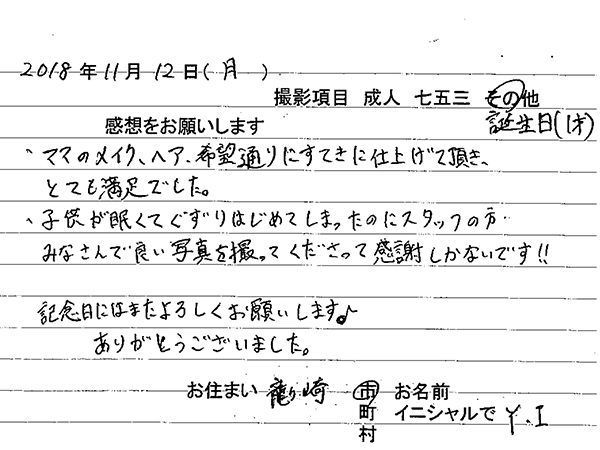 2018年11月12日(月)
撮影項目 成人 七五三 その他
感想をお願いします 誕生日(1才)
・ママのメイク、ヘア、希望通りにすてきに仕上げて頂き、
とても満足でした。
・子供が眠くてぐずりはじめてしまったのにスタッフの方
みなさんで良い写真を撮ってくださって感謝しかないです!!
記念日にはまたよろしくお願いします♪
ありがとうございました。
お住まい 龍ヶ崎 市 お名前
町 イニシャルで Y.I
村